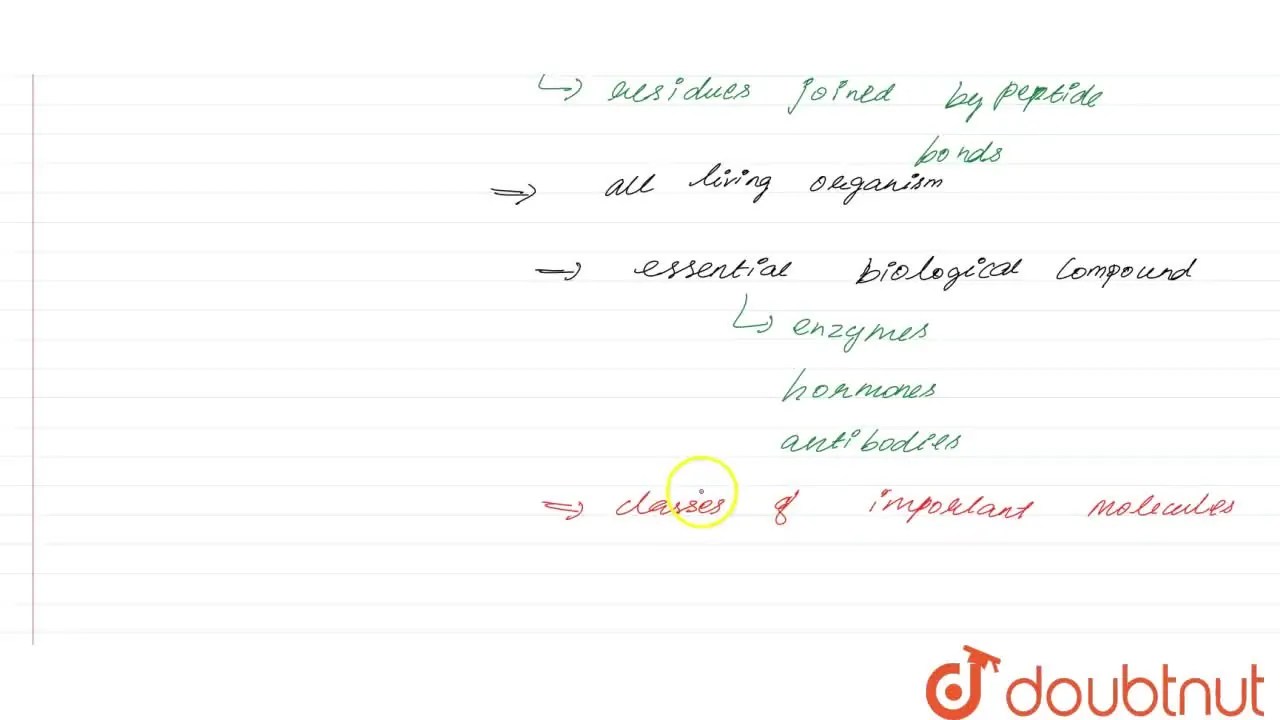 ↳ residues joined by peptide
bonds
⇒ all living organism
⇒ essential biological compound
↳ enzymes
hormones
antibodies
⇒ classes of important molecules
doubtnut